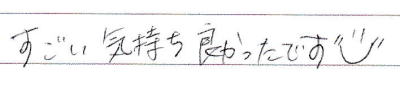 すごい気持ち良かったです